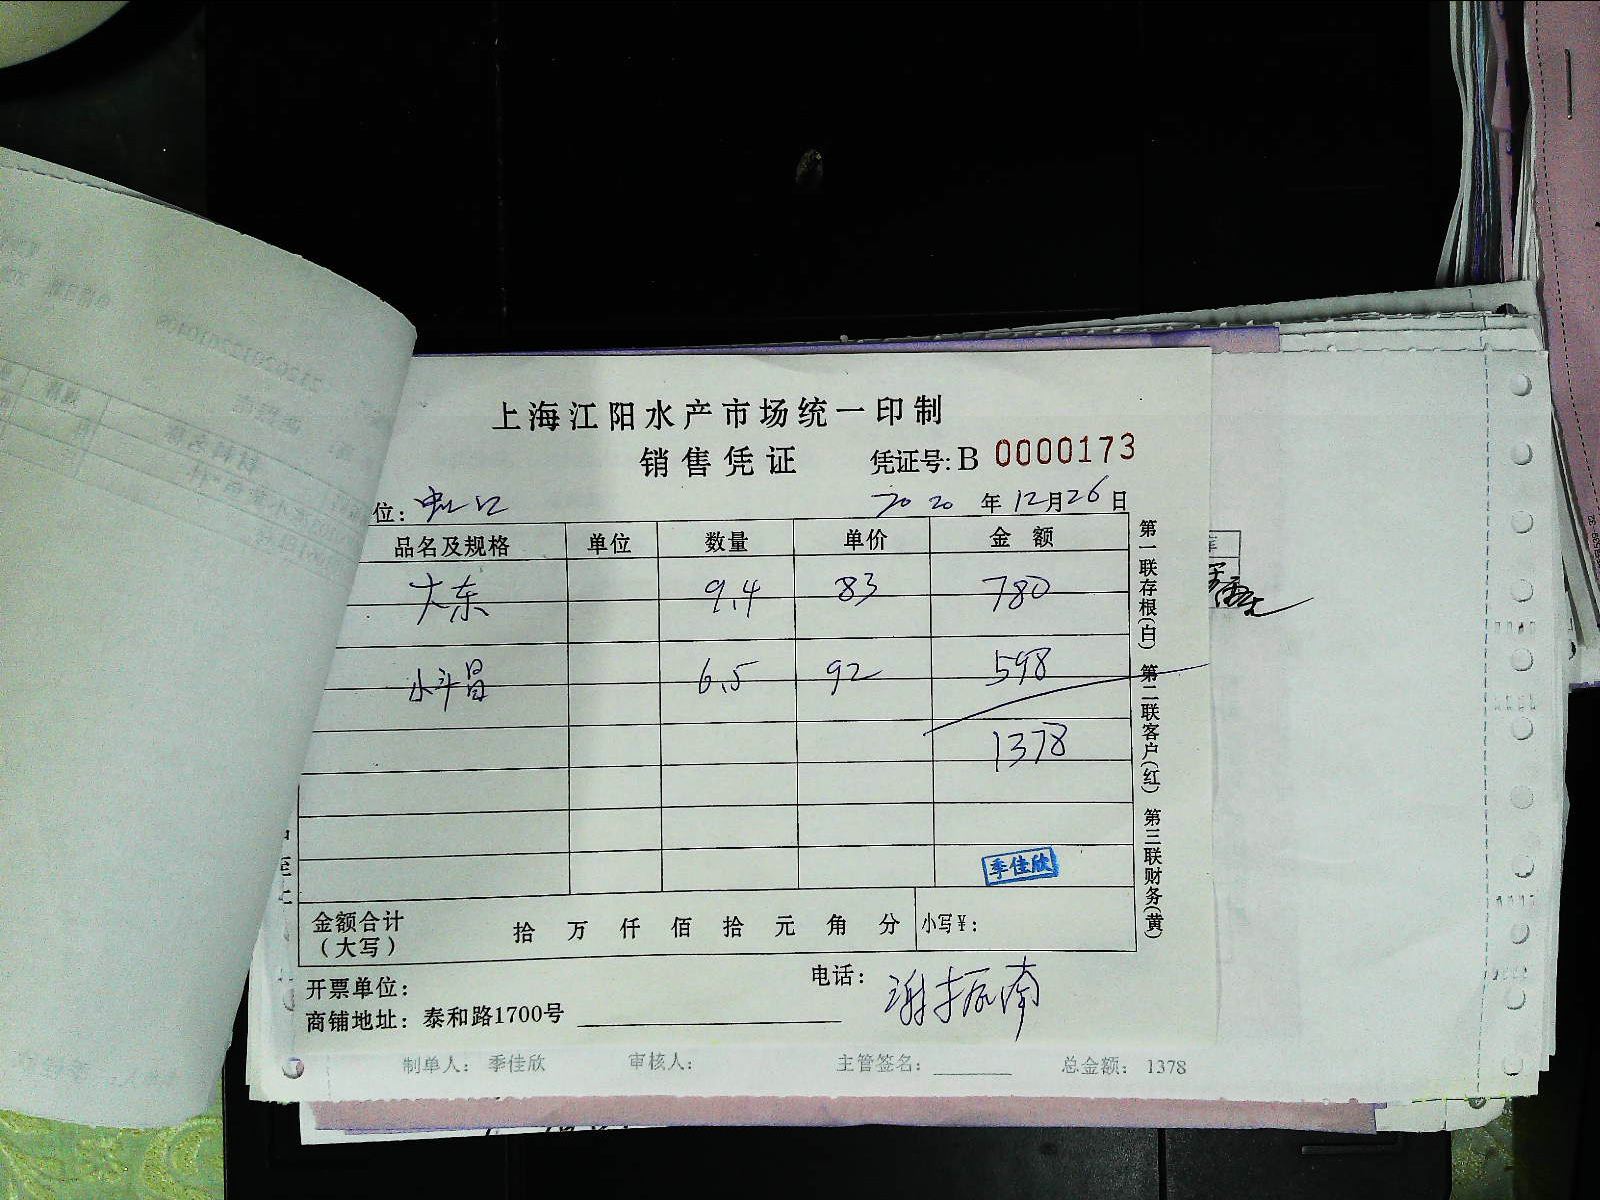 上海江阳水产市场统一印制
销售凭证 凭证号: B 0000173
位: 虹江 2020年12月26日
品名及规格 单位 数量 单价 金额
大东 9.4 83 780
小斗昌 6.5 92 598
1378
季佳欣
金额合计(大写) 拾 万 仟 佰 拾 元 角 分 小写¥:
开票单位: 电话: 谢振南
商铺地址: 泰和路1700号
第一联存根(白) 第二联客户(红) 第三联财务(黄)
制单人: 季佳欣 审核人: 主管签名: 总金额: 1378